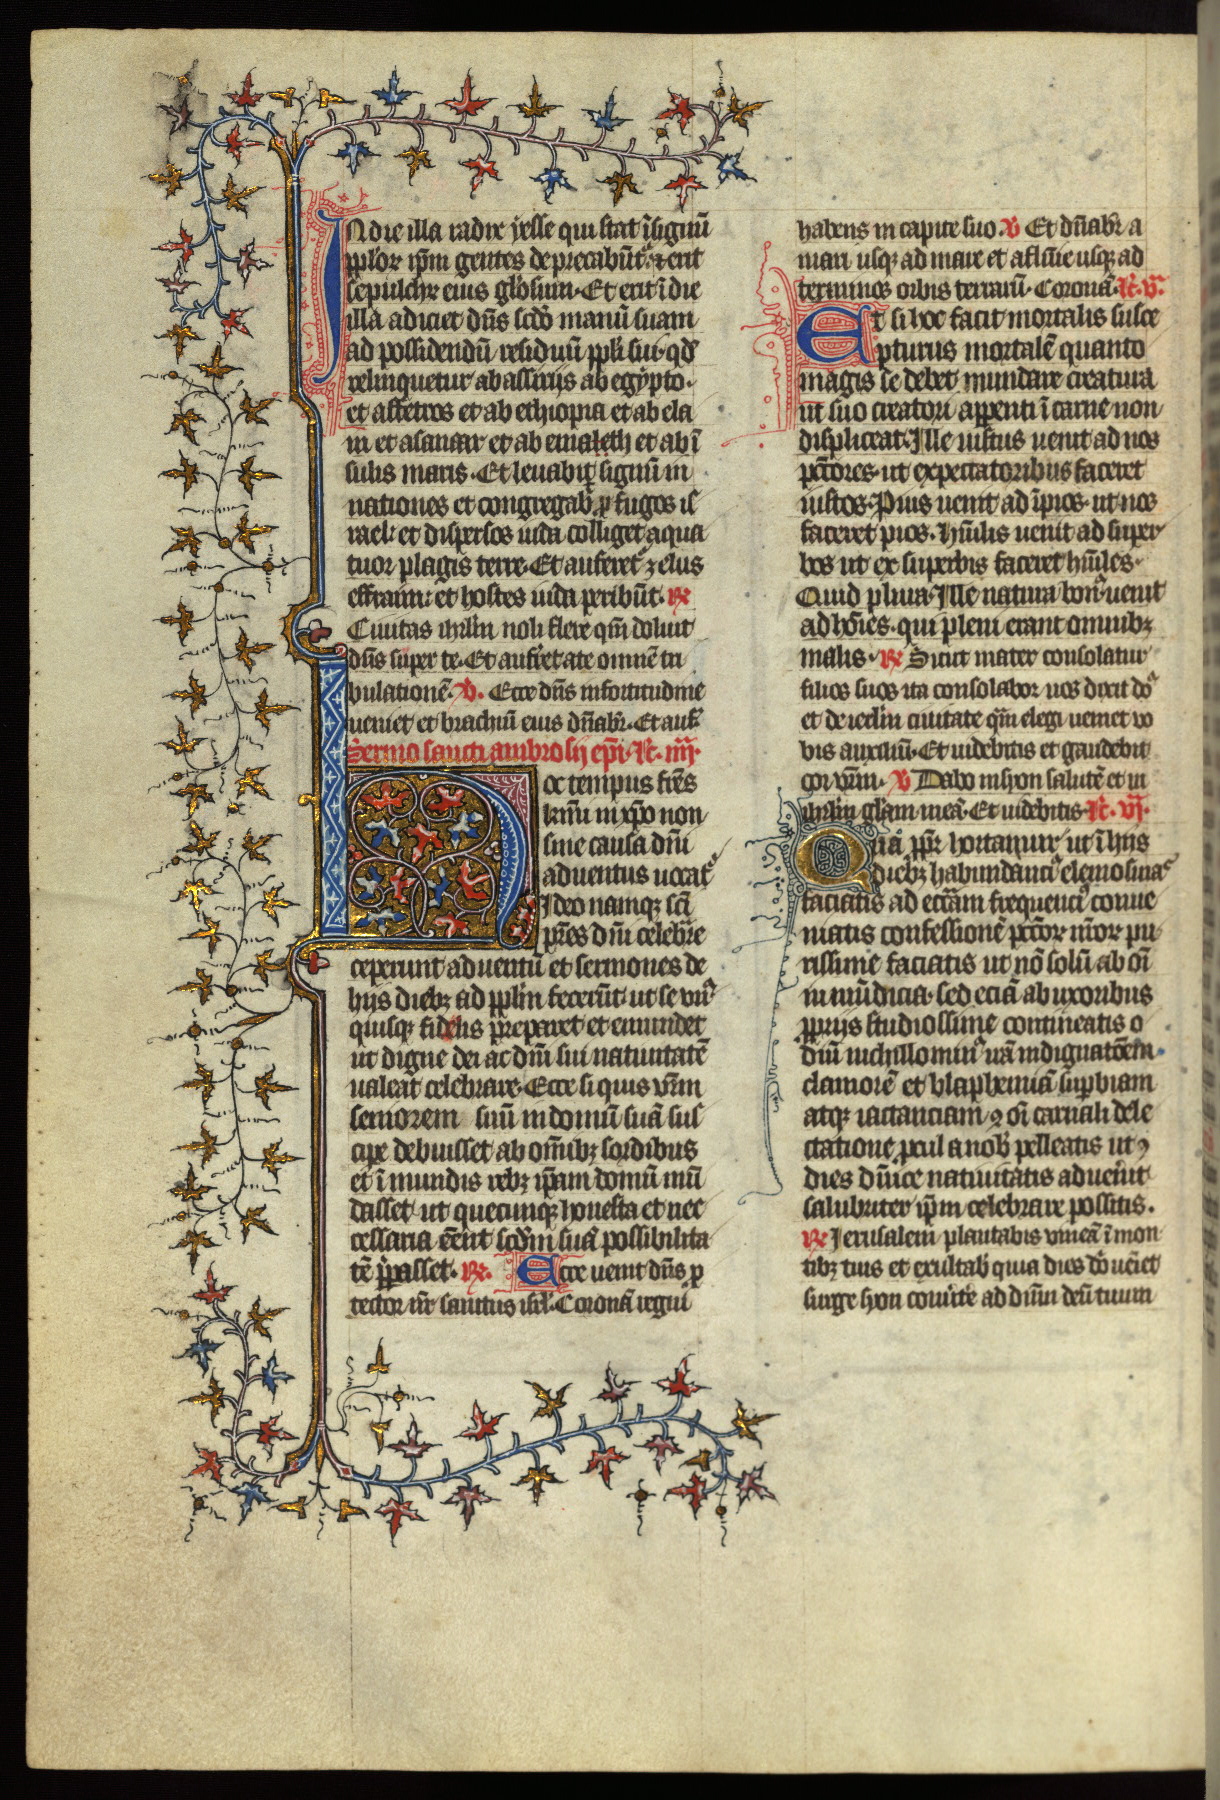 In die illa radix yesse qui stat ī signū
pplor ip̄m gentes deprecabūt᷑ ⁊ erit
sepulchr̄ eius gl̄osum. Et erit ī die
illa adiciet dn̄s sc̄do manū suam
ad possidendū residuū ppl̄i sui qd̄
relinquetur ab assiriis ab egypto.
et a fetros et ab ethiopia et ab ela
m et a sanaar et ab emaleth et ab ī
sulis maris. Et levabit᷑ signū in
nationes et congregab̄ pfugos is
rael: et dispersos iuda colliget a qua
tuor plagis terre. Et auferet᷑ zelus
effraim: et hostes iuda peribūt. R̸
Civitas ihrl̄m noli flere qm̄ doluit
dn̄s super te. Et auferet a te omnē tri
bulationē. V̸. Ecce dn̄s in fortitudine
veniet et brachiū eius dn̄abr̄. Et auf̄
Sermo sancti ambrosii ep̄i. lc̄. iiij.
Hoc tempus fr̄es
kr̄mi in xp̄o non
sine causa dn̄i
adventus vocat᷑
Ideo namq; sc̄i
pr̄es dn̄i celebr̄e
ceperunt adventū et sermones de
hijs dieb; ad ppl̄m fecerūt ut se vn᷑
quisq; fidelis preparet et emundet
ut digne dei ac dn̄i sui nativitatē
valeat celebrare. Ecce si quis vr̄m
seniorem suū in domū suā sus
cipe debuisset ab om̄ib; sordibus
et īmundis reb; ip̄am domū mū
dasset ut quecunq; honesta et nec
cessaria eēnt sc̄dm suā possibilita
tē p̄passet. R̸. Ecce venit dn̄s p
tector nr̄ sanctus isrl̄. Coronā regni
habens in capite suo. V̸ Et dn̄abr̄ a
mari usq; ad mare et a flūīe usq; ad
terminos orbis terrarū. Coronā. lc̄. v̄.
Et si hoc facit mortalis susce
pturus mortalē quanto
magis se debet mundare creatura
ut suo creatori apparenti ī carne non
displiceat. Ille iustus venit ad nos
pct̄ores. ut ex peccatoribus faceret
iustos. Pius venit ad īpios. ut nos
faceret pios. hūilis venit ad super
bos ut ex superbis faceret hūiles.
Quid plura. Ille natura bon᷑ venit
ad hōīes. qui pleni erant omnib;
malis. R̸ Sicut mater consolatur
filios suos ita consolabor vos dicit do᷑
et de ierl̄m civitate qm̄ elegi veniet vo
bis auxiliū. Et videbitis et gaudebit
cor vr̄m. V̸ Dabo in syon salutē et in
ihrl̄m gl̄am meā. Et videbitis. lc̄. vj.
Qua ppr̄ hortamur ut ī hiis
dieb; habundanci᷑ elemosinas
faciatis ad eccl̄iam frequenci᷑ conve
niatis confessionē pct̄or nr̄or pu
rissime faciatis ut nō solū ab oī
inmūdicia. sed eciā ab uxoribus
ppriis studiosissime contineatis o
diū nichillomin᷑ irā indignatōem.
clamorē et blaphemiā supbiam
atq; iactanciam ⁊ oī carnali dele
ctatione pcul a nob̄ pelleatis ut ⁊
dies dn̄ice nativitatis advenīt
salubriter ip̄m celebrare possitis.
R̸ Jerusalem plantabis vineā ī mon
tib; tuis et exultab̄ quia dies dn̄i veniet
surge syon conv̄te ad dn̄m deū tuum